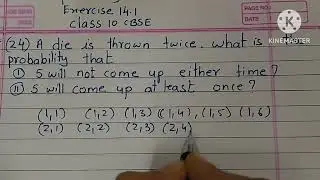 Exercise 14.1
class 10 CBSE
PAGE NO.
DATE
KINEMASTER
(24) A die is thrown twice. what is
probability that
(i) 5 will not come up either time?
(ii) 5 will come up at least once?
(1,1) (1,2) (1,3) (1,4), (1,5) (1,6)
(2,1) (2,2) (2,3) (2,4)